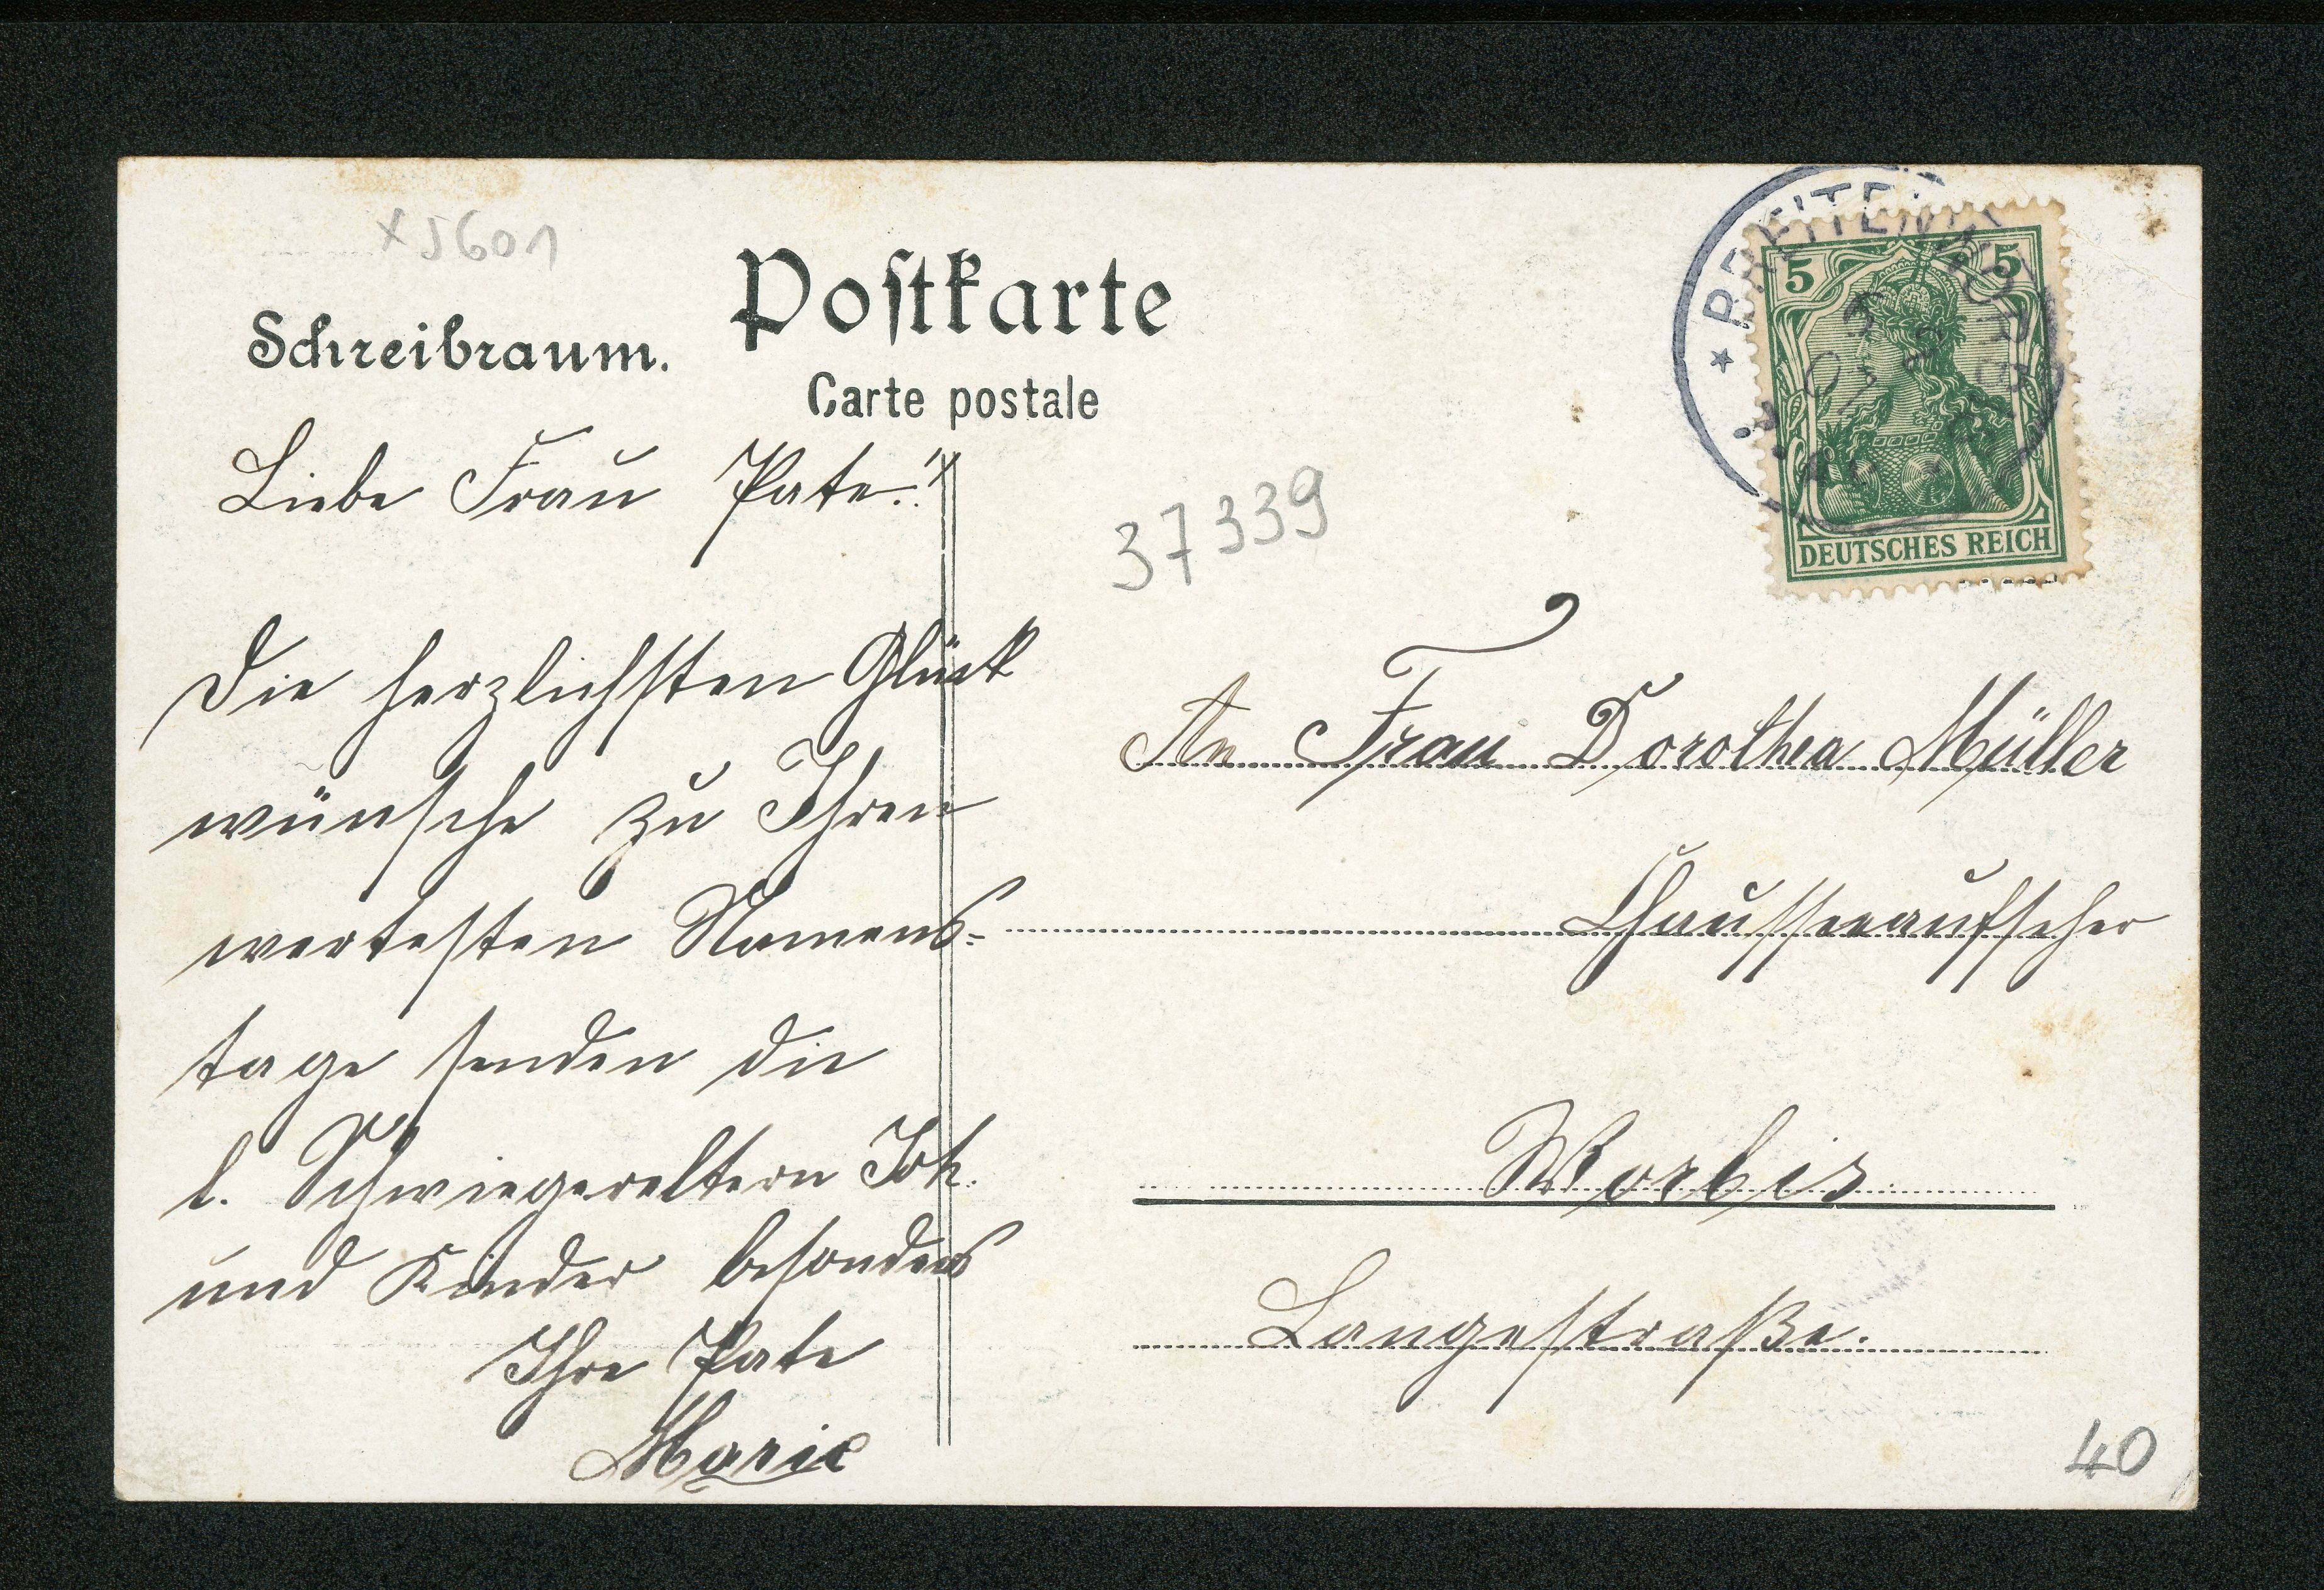 x 5601
Schreibraum.
Postkarte
Carte postale
Liebe Frau Pate!
Die herzlichsten Glück
wünsche zu Ihren
wertesten Namens-
tage senden die
l. Schwiegereltern Joh.
und Kinder besonders
Ihre Pate
Marie
BREITENWORBIS
5 5
DEUTSCHES REICH
37339
An Frau Dorothea Müller
Chausseeaufseher
Worbis
Langestraße.
40